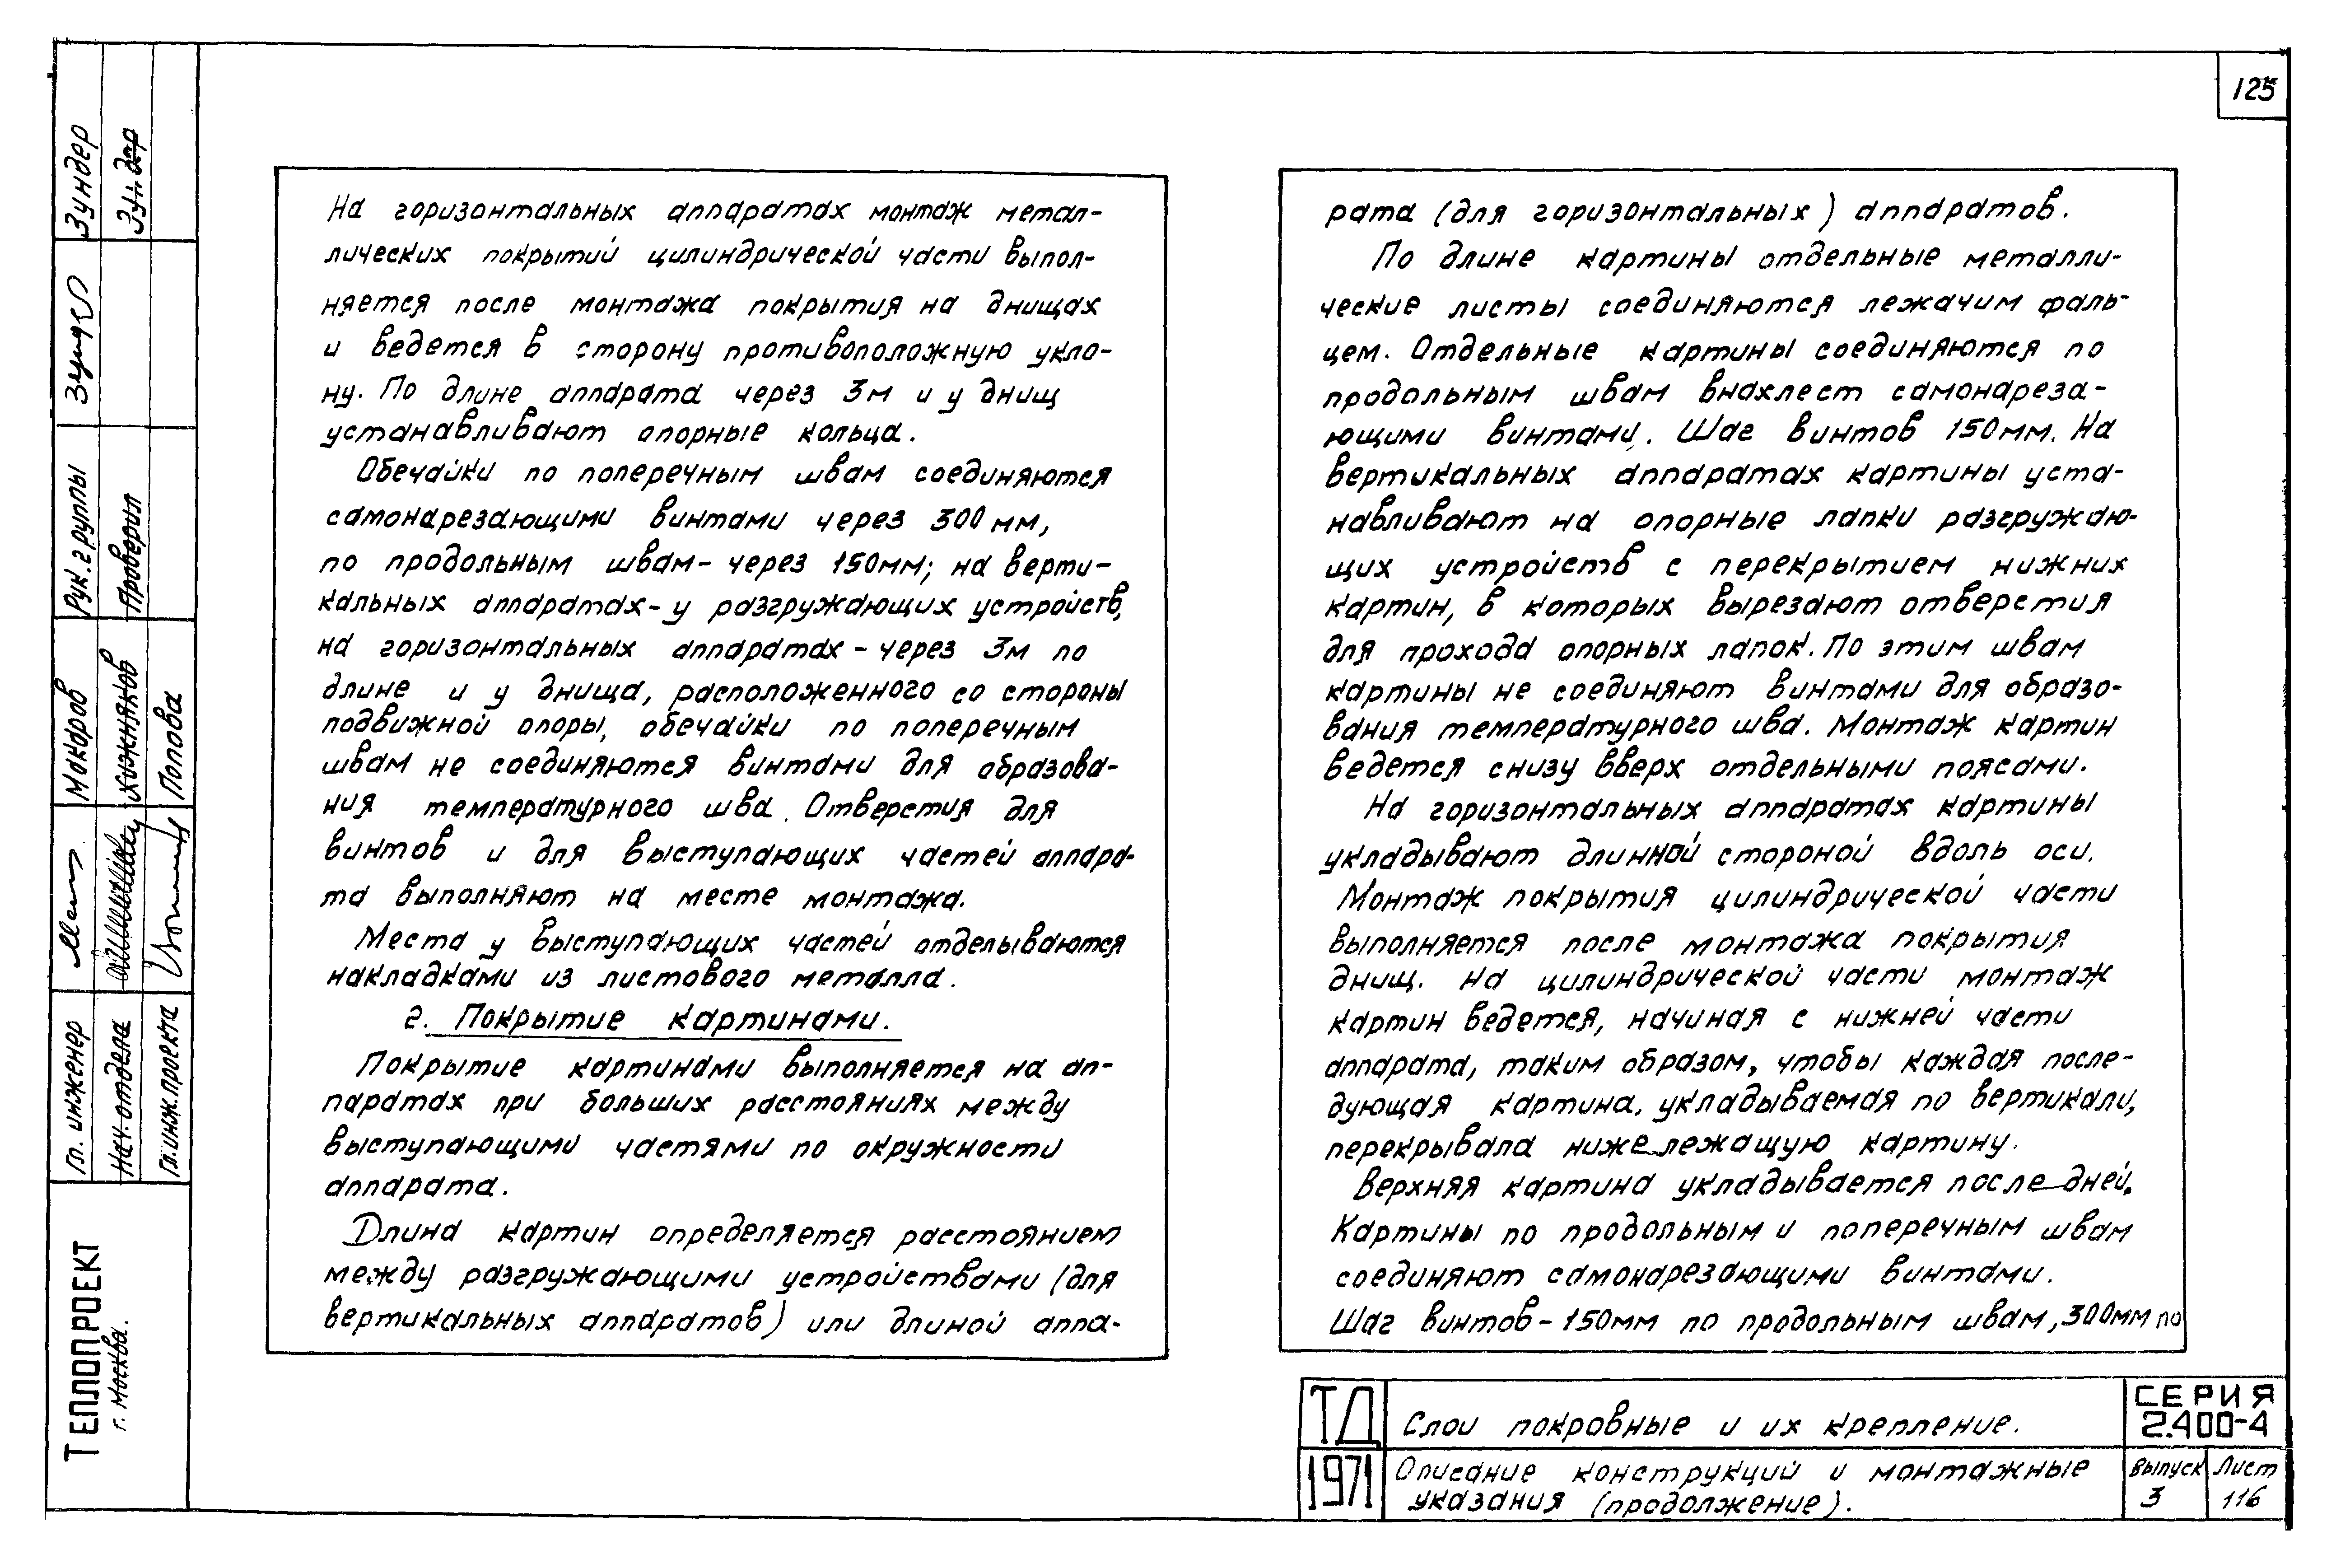 125
На горизонтальных аппаратах монтаж метал-
лических покрытий цилиндрической части выпол-
няется после монтажа покрытия на днищах
и ведется в сторону противоположную укло-
ну. По длине аппарата через 3м и у днищ
устанавливают опорные кольца.
Обечайки по поперечным швам соединяются
самонарезающими винтами через 300 мм,
по продольным швам - через 150мм; на верти-
кальных аппаратах - у разгружающих устройств,
на горизонтальных аппаратах - через 3м по
длине и у днища, расположенного со стороны
подвижной опоры, обечайки по поперечным
швам не соединяются винтами для образова-
ния температурного шва. Отверстия для
винтов и для выступающих частей аппара-
та выполняют на месте монтажа.
Места у выступающих частей отделываются
накладками из листового металла.
г. Покрытие картинами.
Покрытие картинами выполняется на ап-
паратах при больших расстояниях между
выступающими частями по окружности
аппарата.
Длина картин определяется расстоянием
между разгружающими устройствами (для
вертикальных аппаратов) или длиной аппа-
рата (для горизонтальных) аппаратов.
По длине картины отдельные металли-
ческие листы соединяются лежачим фаль-
цем. Отдельные картины соединяются по
продольным швам внахлест самонареза-
ющими винтами. Шаг винтов 150мм. На
вертикальных аппаратах картины уста-
навливают на опорные лапки разгружаю-
щих устройств с перекрытием нижних
картин, в которых вырезают отверстия
для прохода опорных лапок. По этим швам
картины не соединяют винтами для образо-
вания температурного шва. Монтаж картин
ведется снизу вверх отдельными поясами.
На горизонтальных аппаратах картины
укладывают длинной стороной вдоль оси.
Монтаж покрытия цилиндрической части
выполняется после монтажа покрытия
днищ. На цилиндрической части монтаж
картин ведется, начиная с нижней части
аппарата, таким образом, чтобы каждая после-
дующая картина, укладываемая по вертикали,
перекрывала нижележащую картину.
Верхняя картина укладывается последней.
Картины по продольным и поперечным швам
соединяют самонарезающими винтами.
Шаг винтов - 150мм по продольным швам, 300мм по
ТД
1971
Слои покровные и их крепление.
Описание конструкций и монтажные
указания (продолжение).
СЕРИЯ
2.400-4
Выпуск
3
Лист
116
ТЕПЛОПРОЕКТ
г. Москва.
Гл. инженер
Макаров
Рук. группы
Зундер
Нач. отдела
Хижняков
Проверил
Зундер
Гл. инж. проекта
Попова